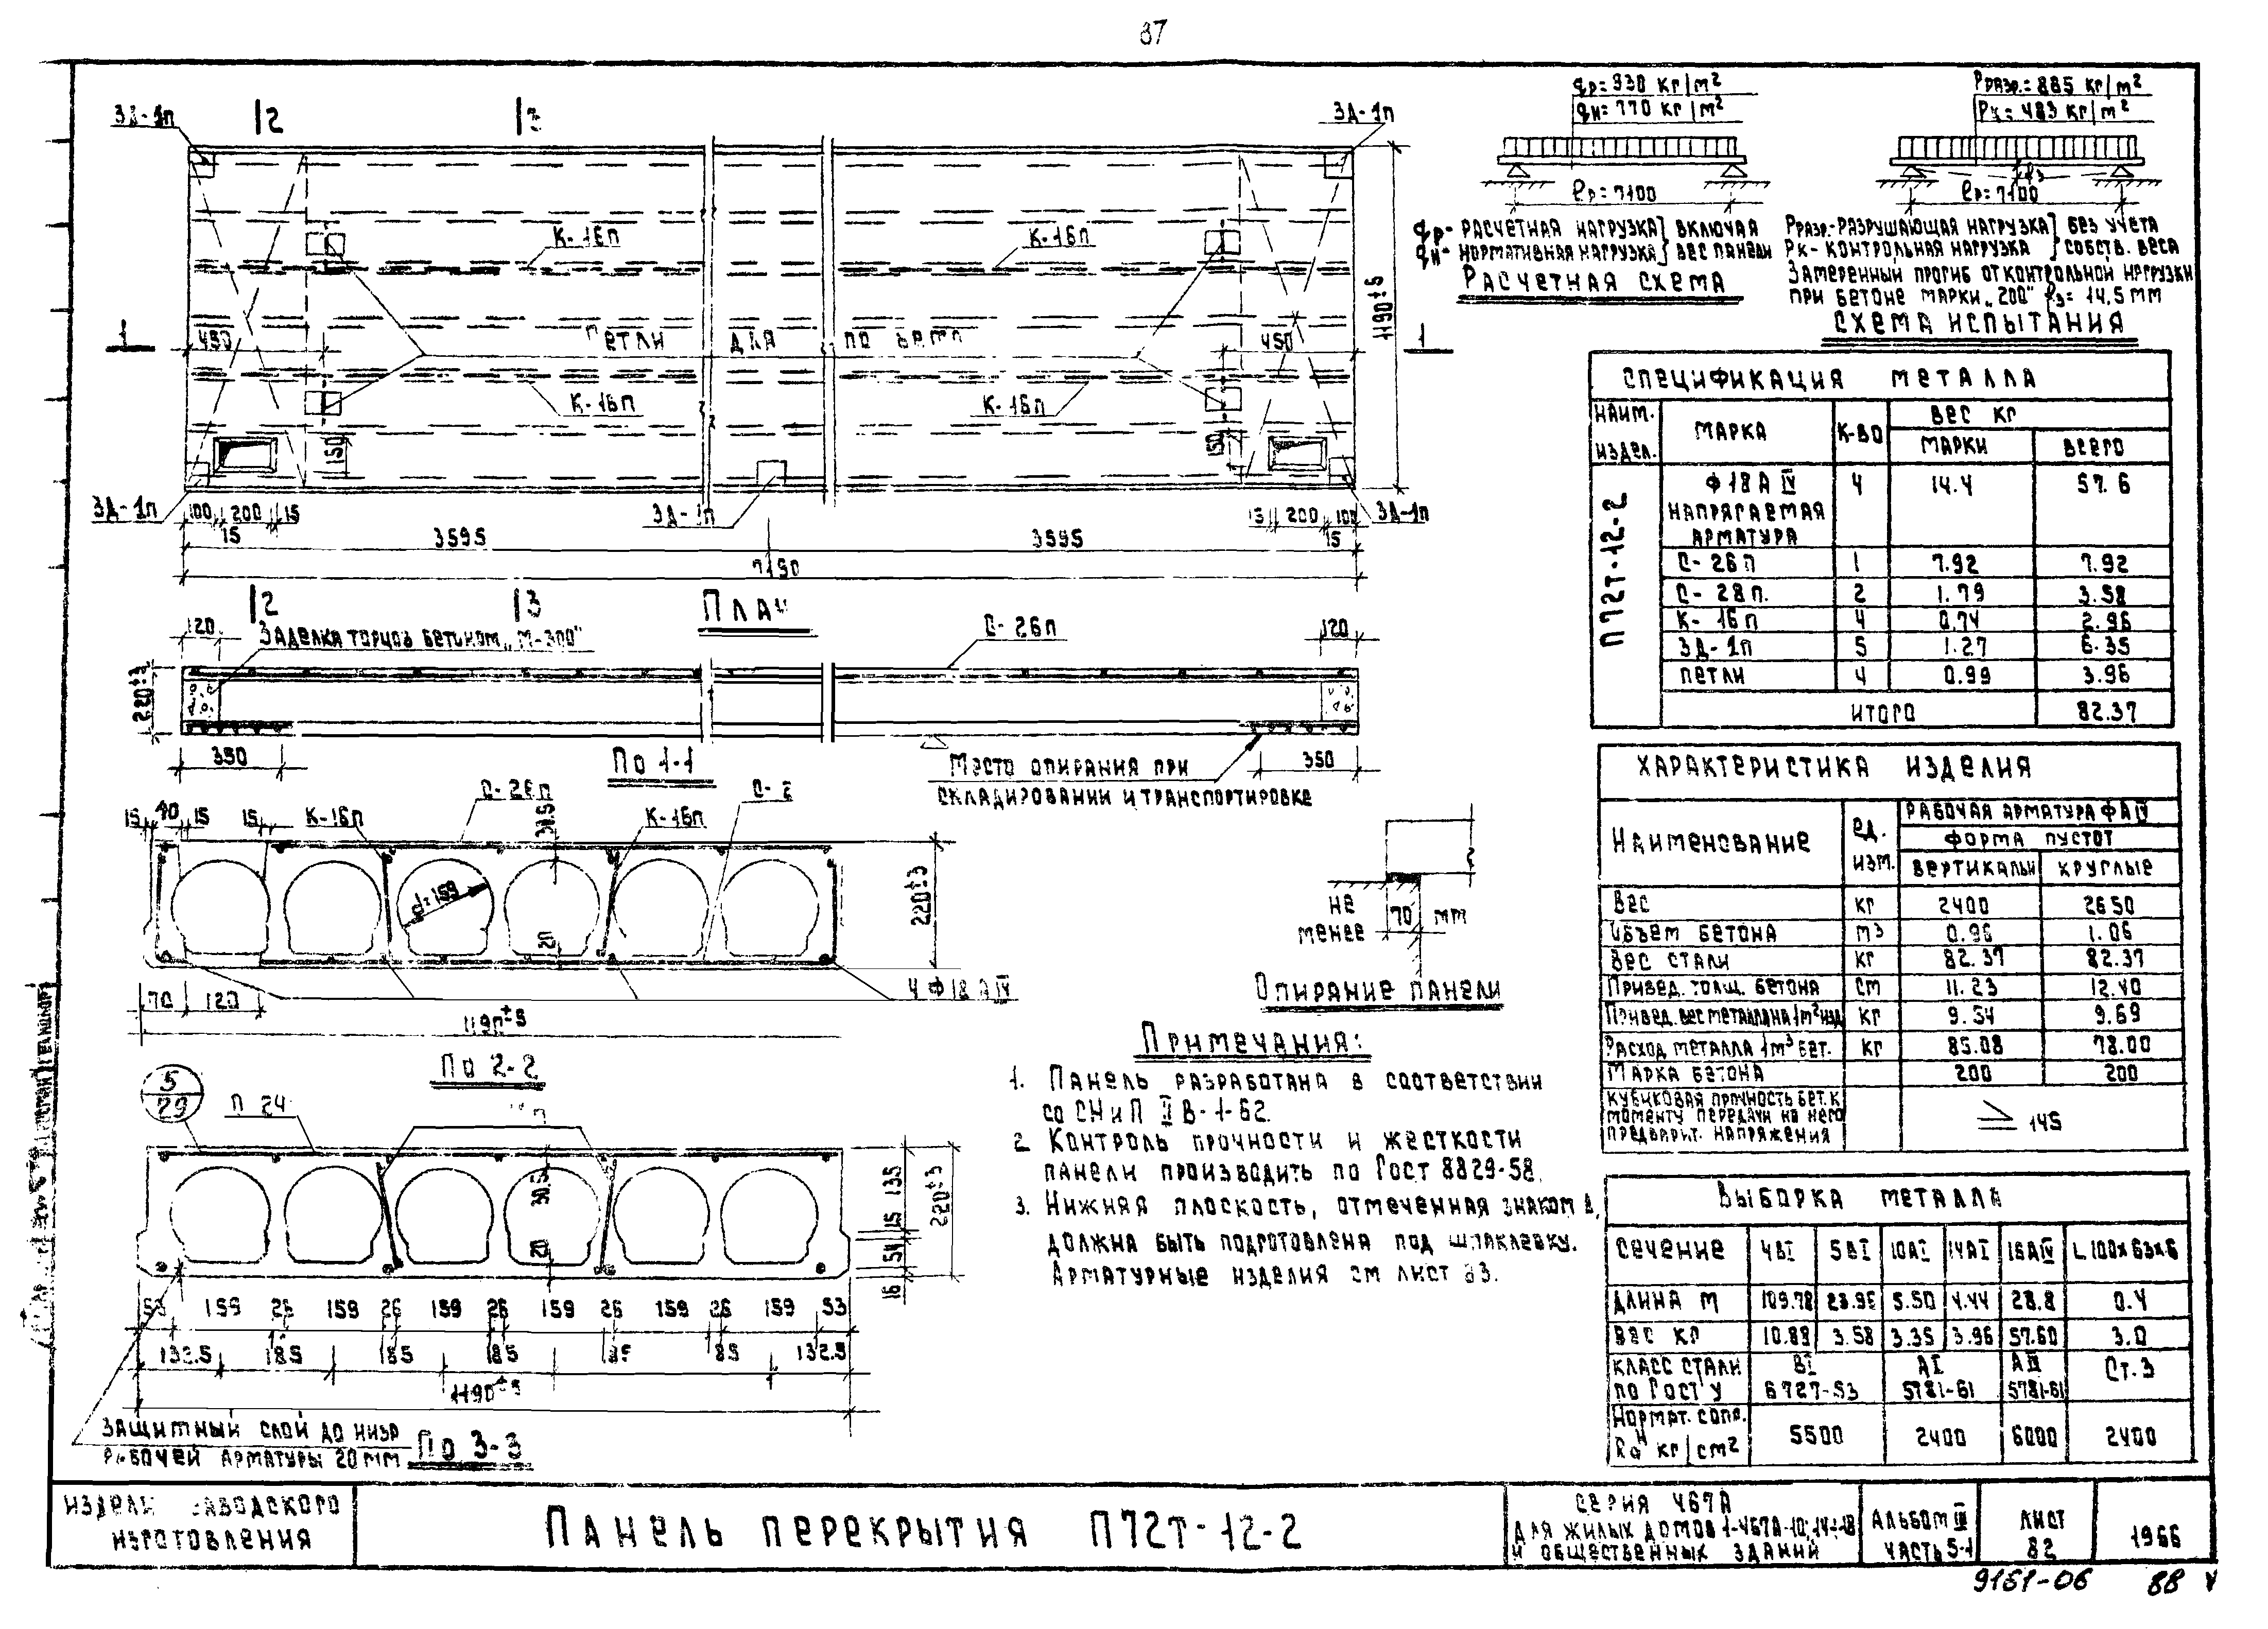 87
ЗД-1п
2
3
ЗД-1п
К-16п
К-16п
Петли для подъема
1
450
450
1
1190±5
К-16п
К-16п
150
150
ЗД-1п
100 200 15
15
ЗД-1п
15 200 100
15
ЗД-1п
3595
3595
7190
2
3
План
120
Заделка торцов бетоном „М-300"
С-26п
120
220±3
350
По 1-1
Место опирания при
складировании и транспортировке
350
15 40 15
15
К-16п
С-26п
37.5
К-16п
d=159
20
220±3
70 120
4 Ф 18 А IV
1190±5
По 2-2
не
менее
70
мм
Опирание панели
5
29
30.5
20
135
15
51
16
220±3
53 159 26 159 26 159 26 159 26 159 26 159 53
132.5 185 185 185 185 185 132.5
1190±5
Защитный слой до низа
рабочей арматуры 20 мм
По 3-3
Примечания:
1. Панель разработана в соответствии
со СНиП II В-1-62.
2. Контроль прочности и жесткости
панели производить по Гост 8829-58.
3. Нижняя плоскость, отмеченная знаком
должна быть подготовлена под шпаклевку.
Арматурные изделия см лист 83.
qр=930 кг/м²
qн=770 кг/м²
ℓр=7100
qр- расчетная нагрузка} включая
qн- нормативная нагрузка} вес панели
Расчетная схема
Рразр.=885 кг/м²
Рк=483 кг/м²
f з
ℓр=7100
Рразр.-разрушающая нагрузка} без учета
Рк- контрольная нагрузка } собств. веса
Замеренный прогиб от контрольной нагрузки
при бетоне марки „200" fз= 14.5 мм
Схема испытания
Спецификация металла
Наим. издел. Марка К-во Вес кг
марки всего
П72т-12-2
Ф 18 А IV 4 14.4 57.6
напрягаемая
арматура
С-26п 1 7.92 7.92
С-28п. 2 1.79 3.58
К-16п 4 0.74 2.96
ЗД-1п 5 1.27 6.35
петли 4 0.99 3.96
итого 82.37
Характеристика изделия
Наименование ед. изм. Рабочая арматура ФАIV
форма пустот
вертикальн круглые
Вес кг 2400 2650
Объем бетона м³ 0.96 1.06
Вес стали кг 82.37 82.37
Привед. толщ. бетона см 11.23 12.40
Привед. вес металла на 1м² изд кг 9.54 9.69
Расход металла 1м³ бет. кг 85.08 78.00
Марка бетона 200 200
Кубиковая прочность бет. к
моменту передачи на него
предварит. напряжения
≥ 145
Выборка металла
Сечение 4ВI 5ВI 10АI 14АI 18АIV L100x63x6
Длина м 109.78 23.96 5.50 4.44 28.8 0.4
Вес кг 10.88 3.58 3.35 3.96 57.60 3.0
Класс стали
по Гост'у
ВI
6727-53
АI
5781-61
АIV
5781-61
Ст.3
Нормат. сопр.
Rан кг/см²
5500 2400 6000 2400
Изделия заводского
изготовления
Панель перекрытия П72т-12-2
Серия 467А
для жилых домов 1-467А-10;14÷18
и общественных зданий
Альбом III
часть 5-1
Лист
82
1966
9161-06 88